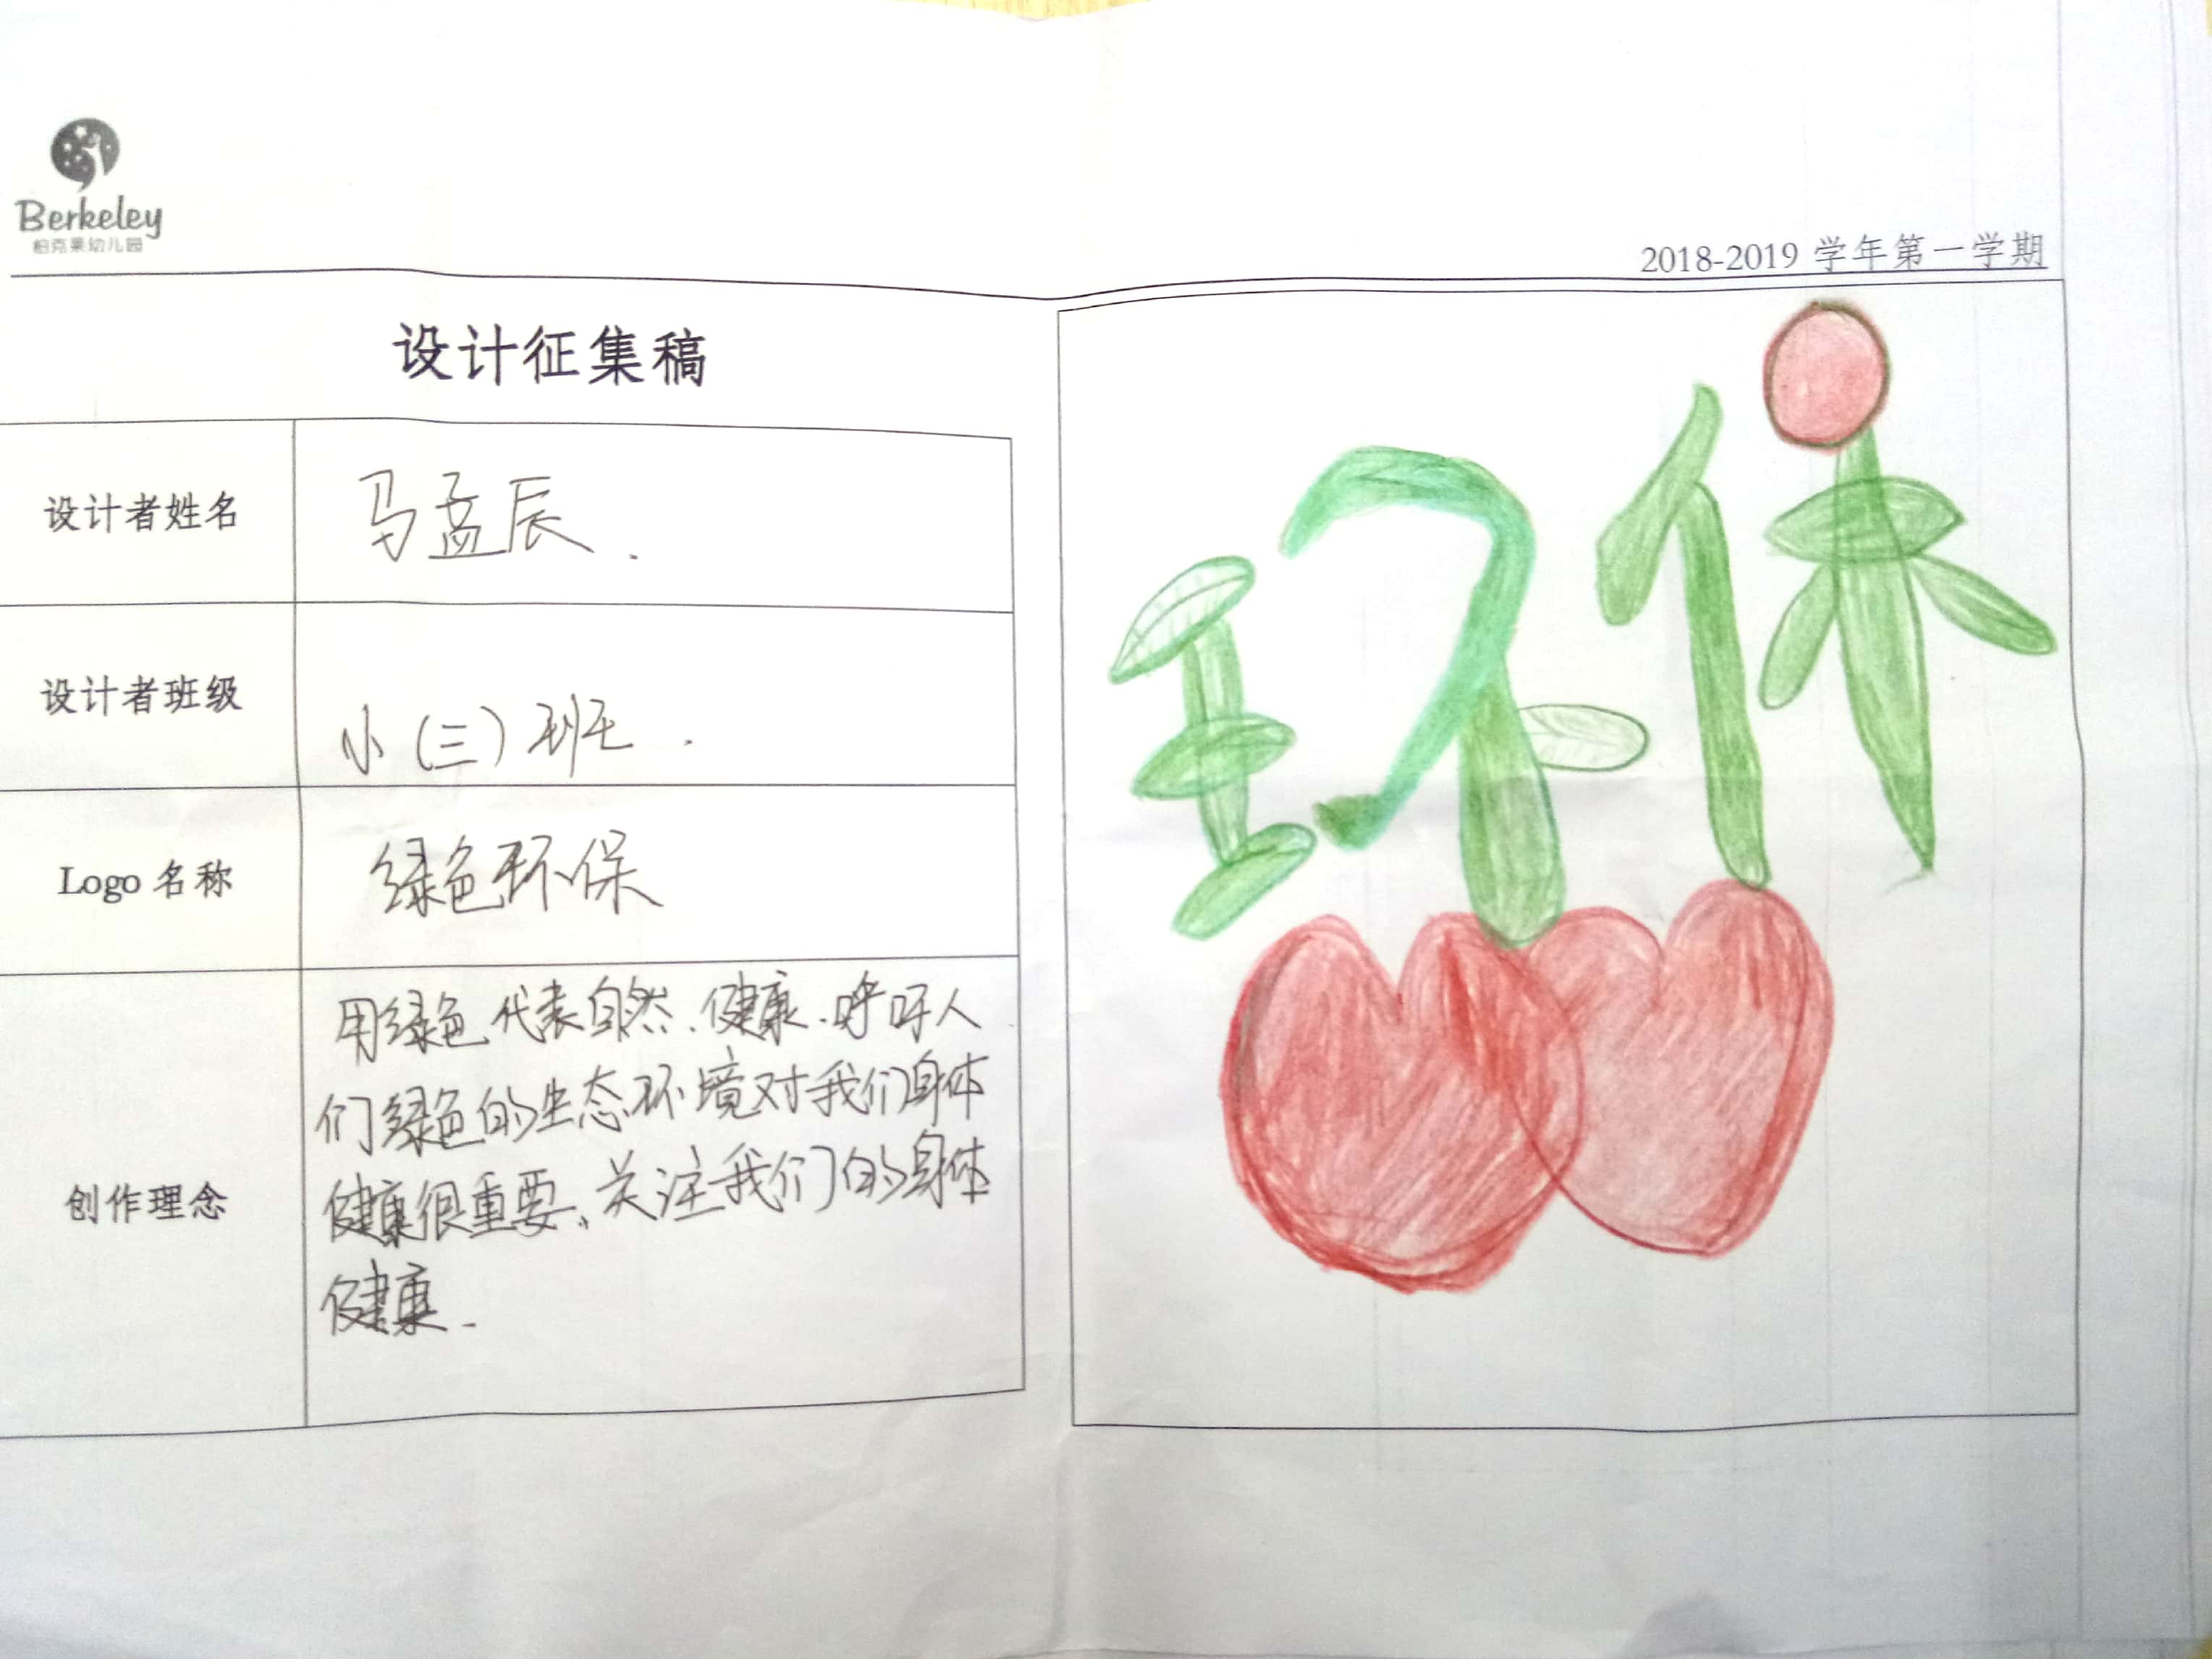 Berkeley
柏克莱幼儿园
2018-2019 学年第一学期
设计征集稿
设计者姓名
马孟辰.
设计者班级
小(三)班.
Logo 名称
绿色环保
创作理念
用绿色代表自然、健康.呼吁人
们绿色的生态环境对我们身体
健康很重要、关注我们的身体
健康.
环保